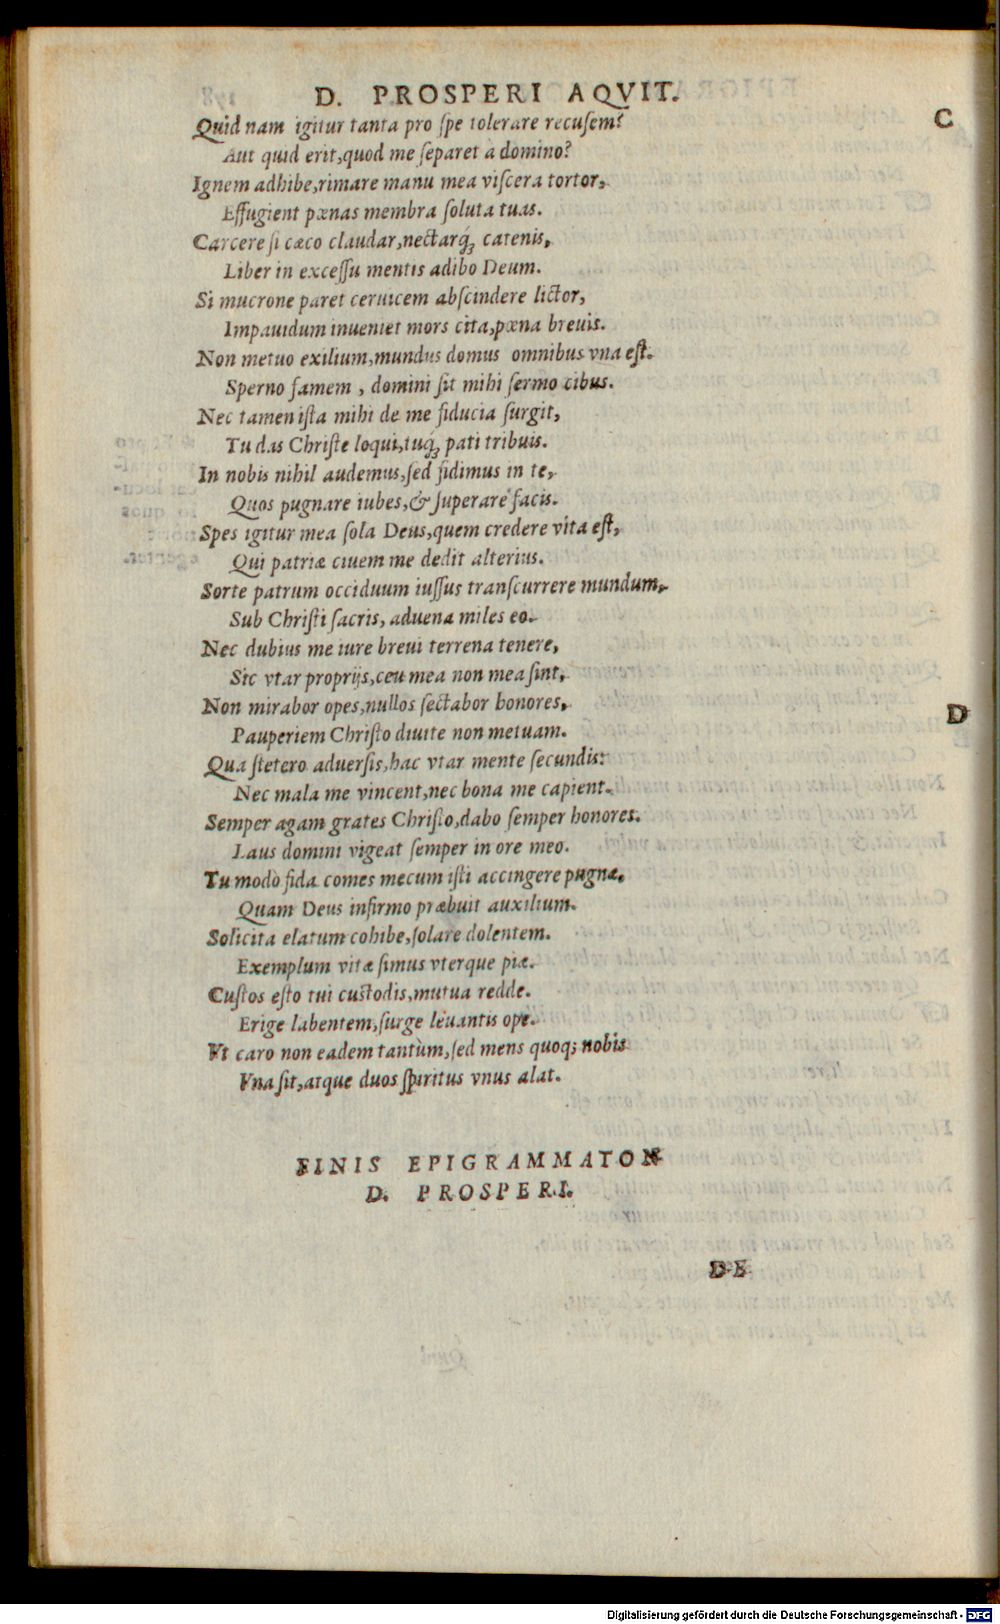 D. PROSPERI AQVIT.
C
Quid nam igitur tanta pro ſpe tolerare recuſem?
Aut quid erit, quod me ſeparet a domino?
Ignem adhibe, rimare manu mea viſcera tortor,
Effugient pœnas membra ſoluta tuas.
Carcere ſi cæco claudar, nectarq́ꝫ catenis,
Liber in exceſſu mentis adibo Deum.
Si mucrone paret ceruicem abſcindere lictor,
Impauidum inueniet mors cita, pœna breuis.
Non metuo exilium, mundus domus omnibus vna eſt.
Sperno famem, domini ſit mihi ſermo cibus.
Nec tamen iſta mihi de me fiducia ſurgit,
Tu das Chriſte loqui, tuq́ꝫ pati tribuis.
In nobis nihil audemus, ſed fidimus in te,
Quos pugnare iubes, & ſuperare facis.
Spes igitur mea ſola Deus, quem credere vita eſt,
Qui patriæ ciuem me dedit alterius.
Sorte patrum occiduum iuſſus tranſcurrere mundum,
Sub Chriſti ſacris, aduena miles eo.
Nec dubius me iure breui terrena tenere,
Sic vtar proprijs, ceu mea non mea ſint,
D
Non mirabor opes, nullos ſectabor honores,
Pauperiem Chriſto diuite non metuam.
Qua ſtetero aduerſis, hac vtar mente ſecundis:
Nec mala me vincent, nec bona me capient.
Semper agam grates Chriſto, dabo ſemper honores.
Laus domini vigeat ſemper in ore meo.
Tu modò fida comes mecum iſti accingere pugnæ,
Quam Deus infirmo præbuit auxilium.
Solicita elatum cohibe, ſolare dolentem.
Exemplum vitæ ſimus vterque piæ.
Cuſtos eſto tui cuſtodis, mutua redde.
Erige labentem, ſurge leuantis ope.
Vt caro non eadem tantùm, ſed mens quoqꝫ nobis
Vna ſit, atque duos ſpiritus vnus alat.
FINIS EPIGRAMMATON
D. PROSPERI.
DE
Digitalisierung gefördert durch die Deutsche Forschungsgemeinschaft - DFG